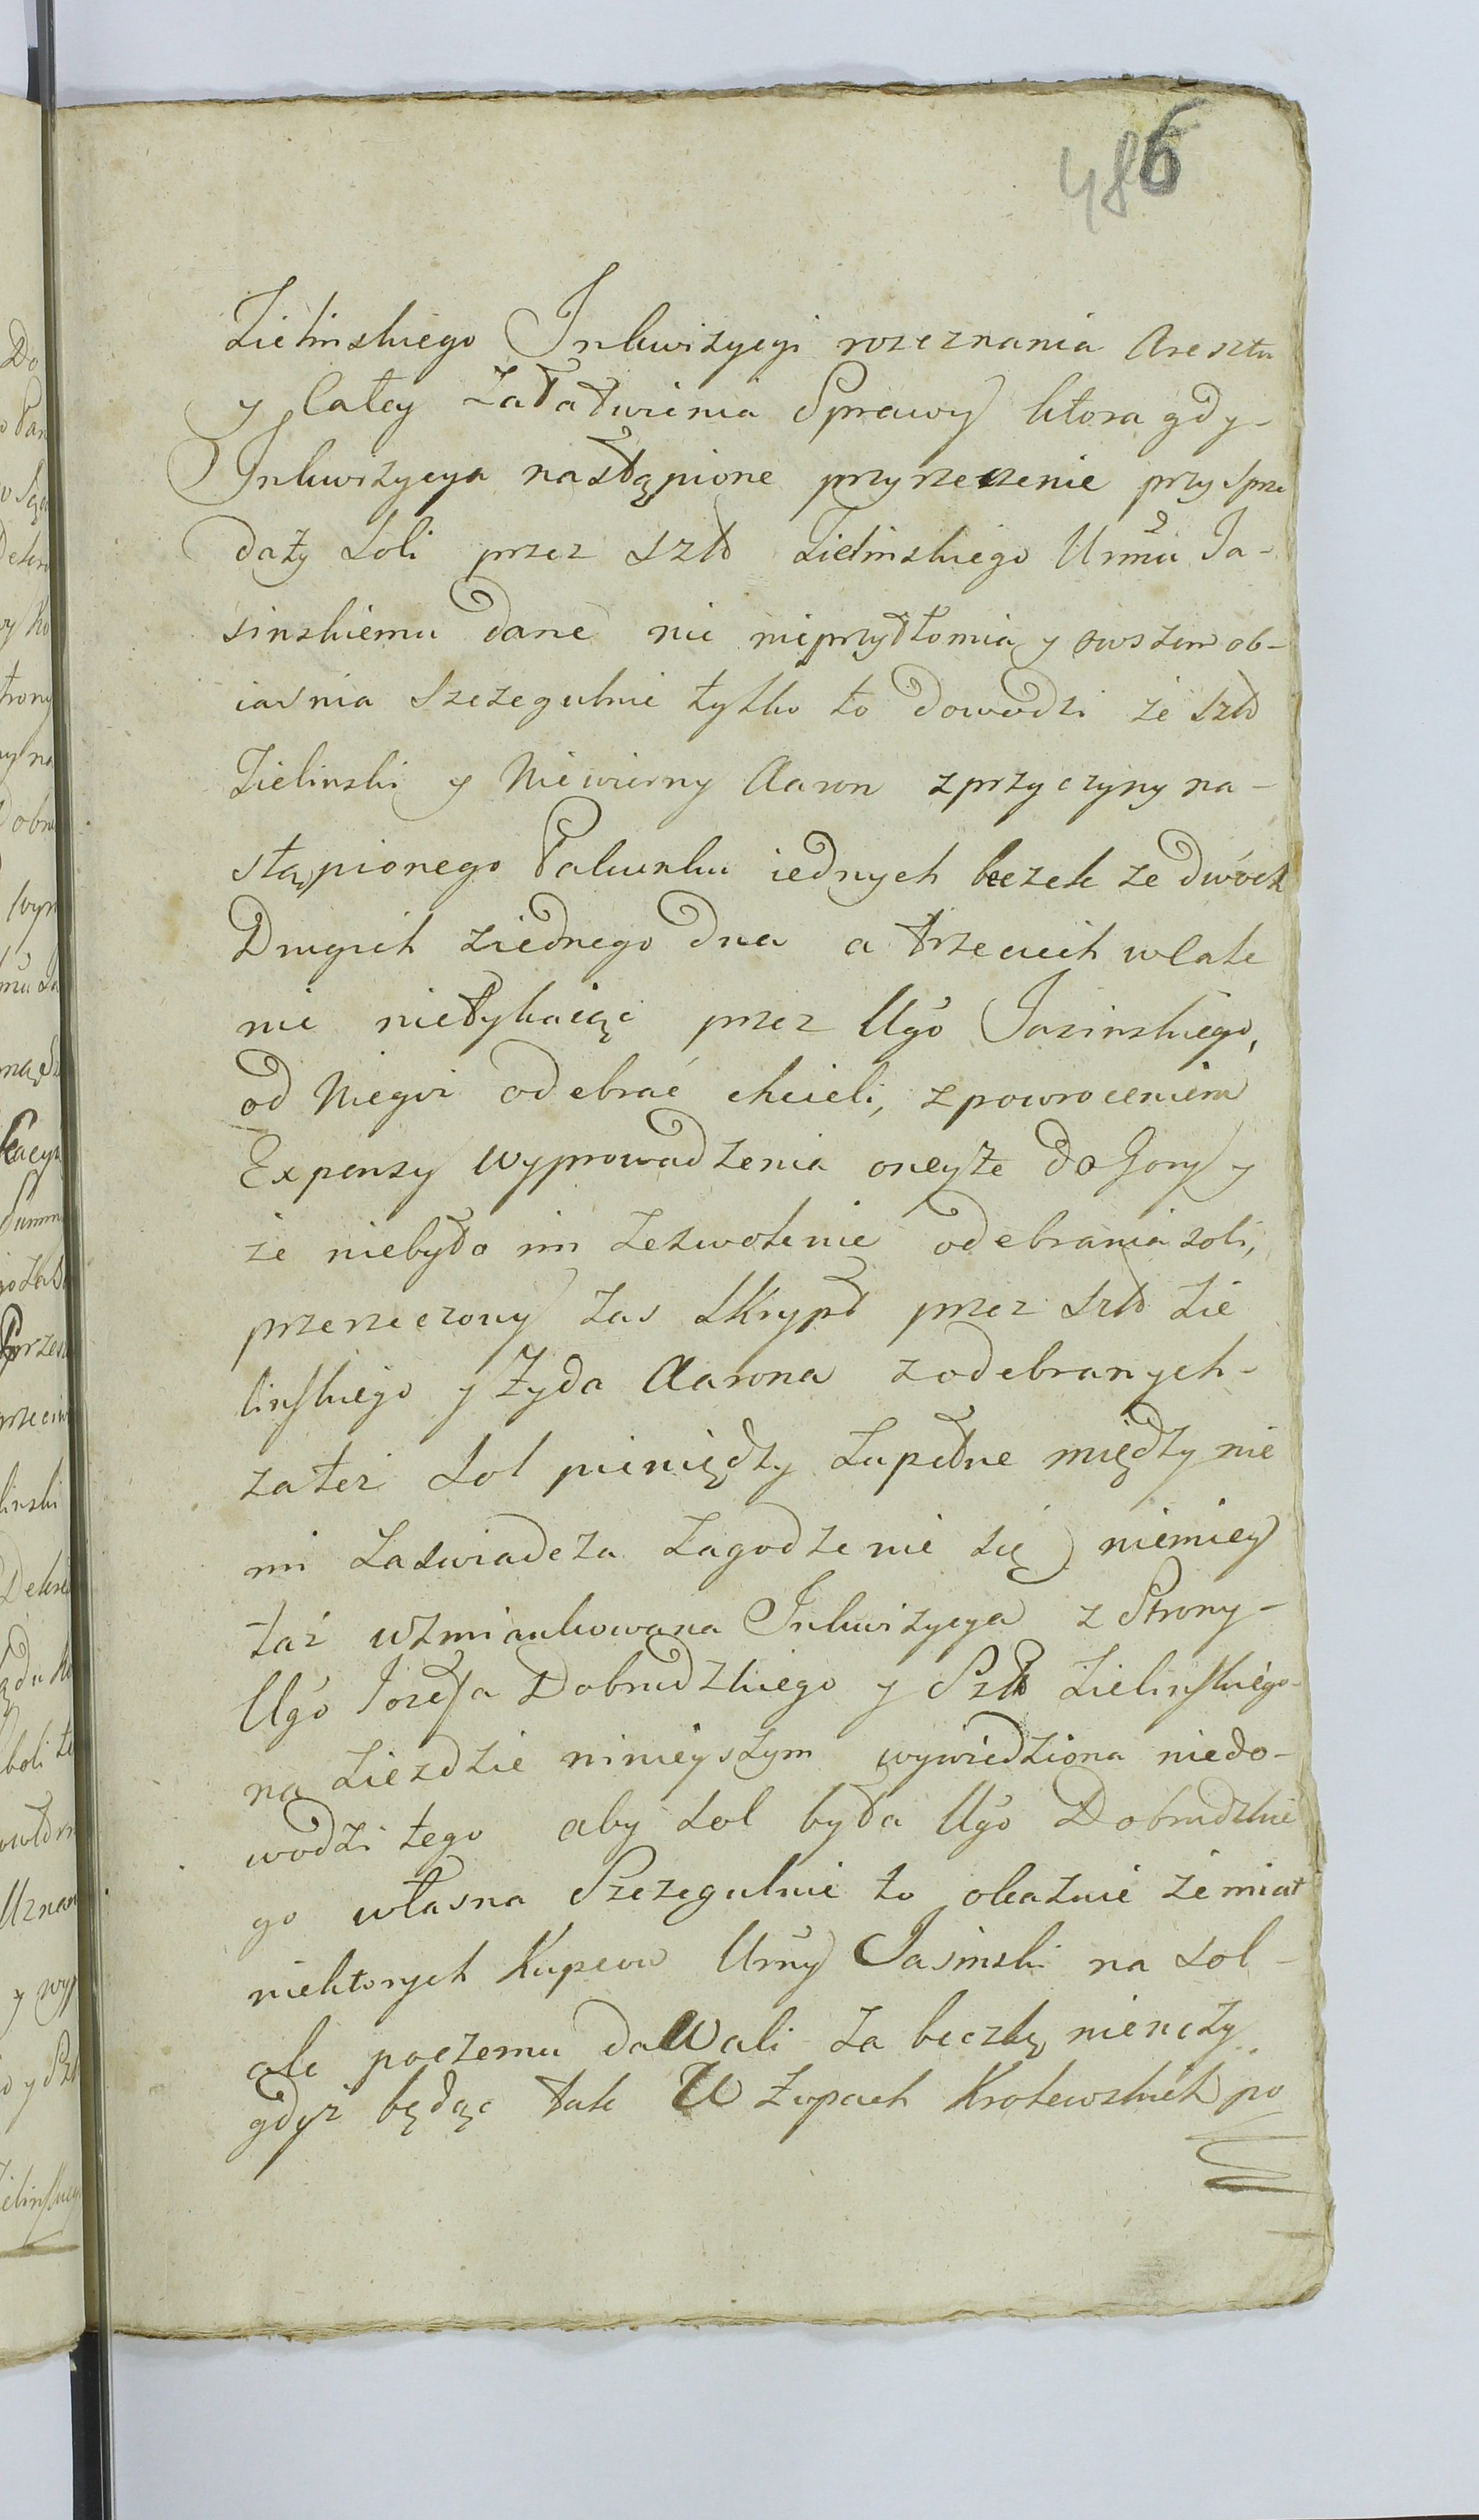 486
Zielinskiego Inkwizycyi rozeznania Aresztu
y Całey załatwienia Sprawy ktora gdy-
Inkwizycya nastąpione przyrzeczenie przy sprze
daży Soli przez Szld Zielinskiego Urmũ Ja-
sinskiemu dane nie nieprzytłomia y owszem ob-
iasnia Szczegulnie tylko to dowodzi że Szld
Zielinski y Niewierny Aaron z przyczyny na-
stąpionego Pakunku iednych beczek ze dwóch
Drugich z iednego dna a trzecich wcale
nic nietykaiąc przez Ugo Jasinskiego,
od Niegoż odebrać chcieli, z powroceniem
Expensy wyprowadzenia oneyże do Gory y
że niebyło im zezwolenie odebrania soli,
przerzeczony zas Skrypt przez Szld Zie
linskiego y Żyda Aarona z odebranych-
zateż Sol pieniędzy zupełne między nie
mi zaswiadcza zagodzenie się niemiey
taż wzmiankowana Inkwizycya z Strony-
Ugo Jozefa Dobrudzkiego y Szld Zielinskiego-
na Ziezdzie ninieyszym wywiedziona niedo-
wodzi tego aby Sol była Ugo Dobrudzkie
go własna Szczegulnie to okazuie że miał
niektorych Kupcow Urny Jasinski na Sol-
ale poczemu dawali za beczkę nierzczy
gdyż będąc tak W Żupach Krolewskich po